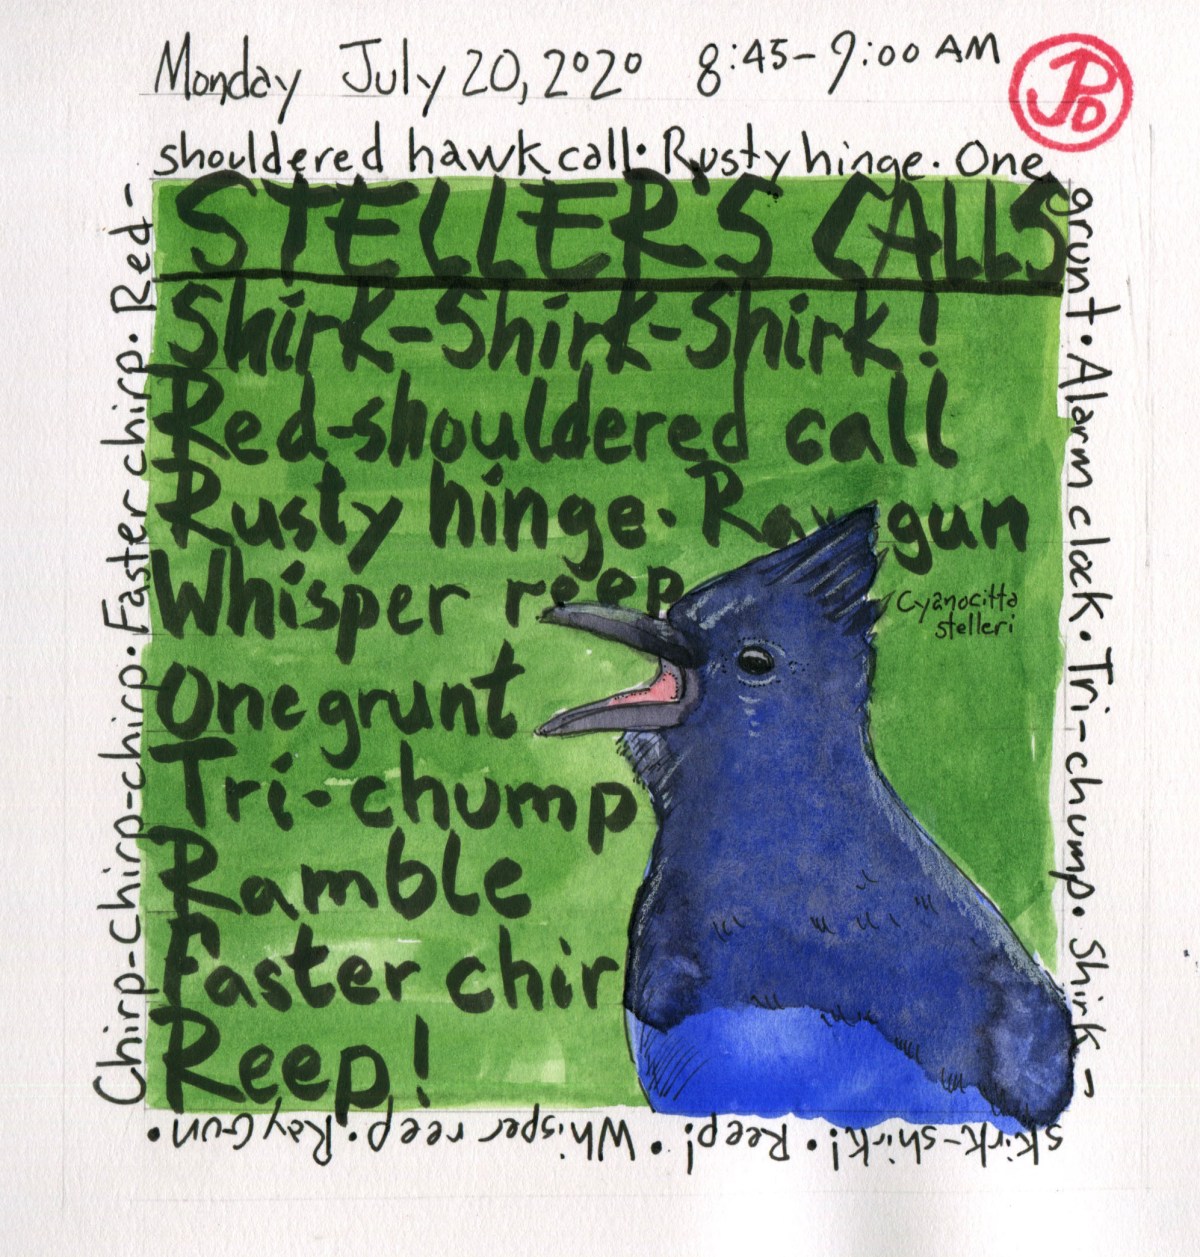 Monday July 20, 2020 8:45-9:00 AM
JPD
shouldered hawk call · Rusty hinge · One
grunt · Alarm clock · Tri-chump · Shirk-
skirk-shirk! · Reep! · Whisper reep · Ray Gun ·
Chirp-chirp-chirp · Faster chirp · Red-
STELLER'S CALLS
Shirk-Shirk-Shirk!
Red-shouldered call
Rusty hinge · Ray gun
Whisper reep
One grunt
Tri-chump
Ramble
Faster chir
Reep!
Cyanocitta
stelleri